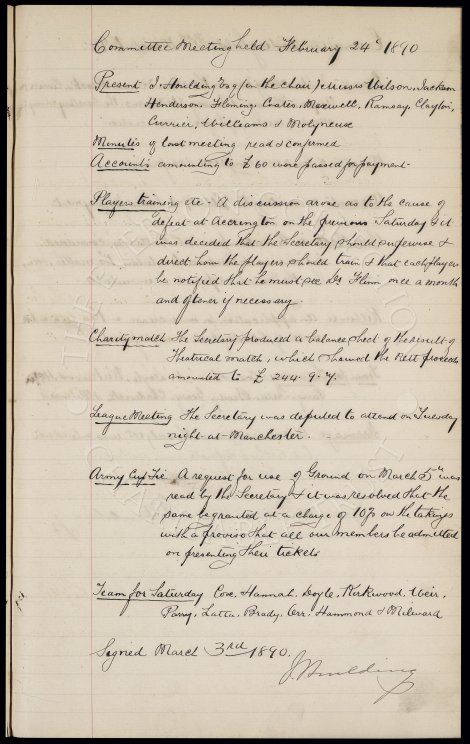 Committee Meeting held February 24th 1890
Present J. Houlding Esq (in the chair) Messrs Wilson, Jackson
Henderson, Fleming, Coates, Maxwell, Ramsay, Clayton,
Currier, Williams & Molyneux
Minutes of last meeting read & confirmed
Accounts amounting to £60 were passed for payment
Players training etc - A discussion arose as to the cause of
defeat at Accrington on the previous Saturday & it
was decided that the Secretary should supervise &
direct how the players should train & that each player
be notified that he must see Dr Flinn once a month
and oftener if necessary
Charity match The Secretary produced a balance sheet of the result of
Theatrical match, which showed the nett proceeds
amounted to £ 244. 9. 7.
League Meeting The Secretary was deputed to attend on Tuesday
night at Manchester.
Army Cup Tie A request for use of Ground on March 5th was
read by the Secretary & it was resolved that the
same be granted at a charge of 10% on the takings
with a proviso that all our members be admitted
on presenting their tickets
Team for Saturday Cox, Hannah, Doyle, Kirkwood, Weir,
Parry, Latta, Brady, Orr, Hammond & Milward
Signed March 3rd 1890.
J Houlding